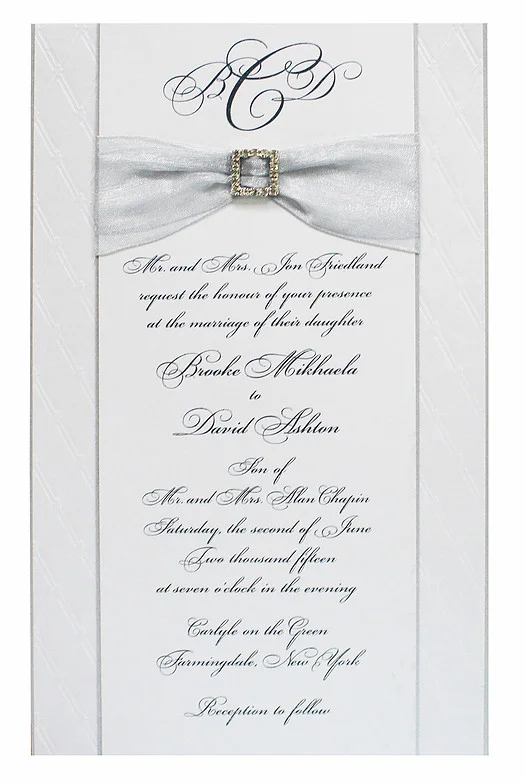 BCD
Mr. and Mrs. Jon Friedland
request the honour of your presence
at the marriage of their daughter
Brooke Mikhaela
to
David Ashton
Son of
Mr. and Mrs. Alan Chapin
Saturday, the second of June
Two thousand fifteen
at seven o'clock in the evening
Carlyle on the Green
Farmingdale, New York
Reception to follow